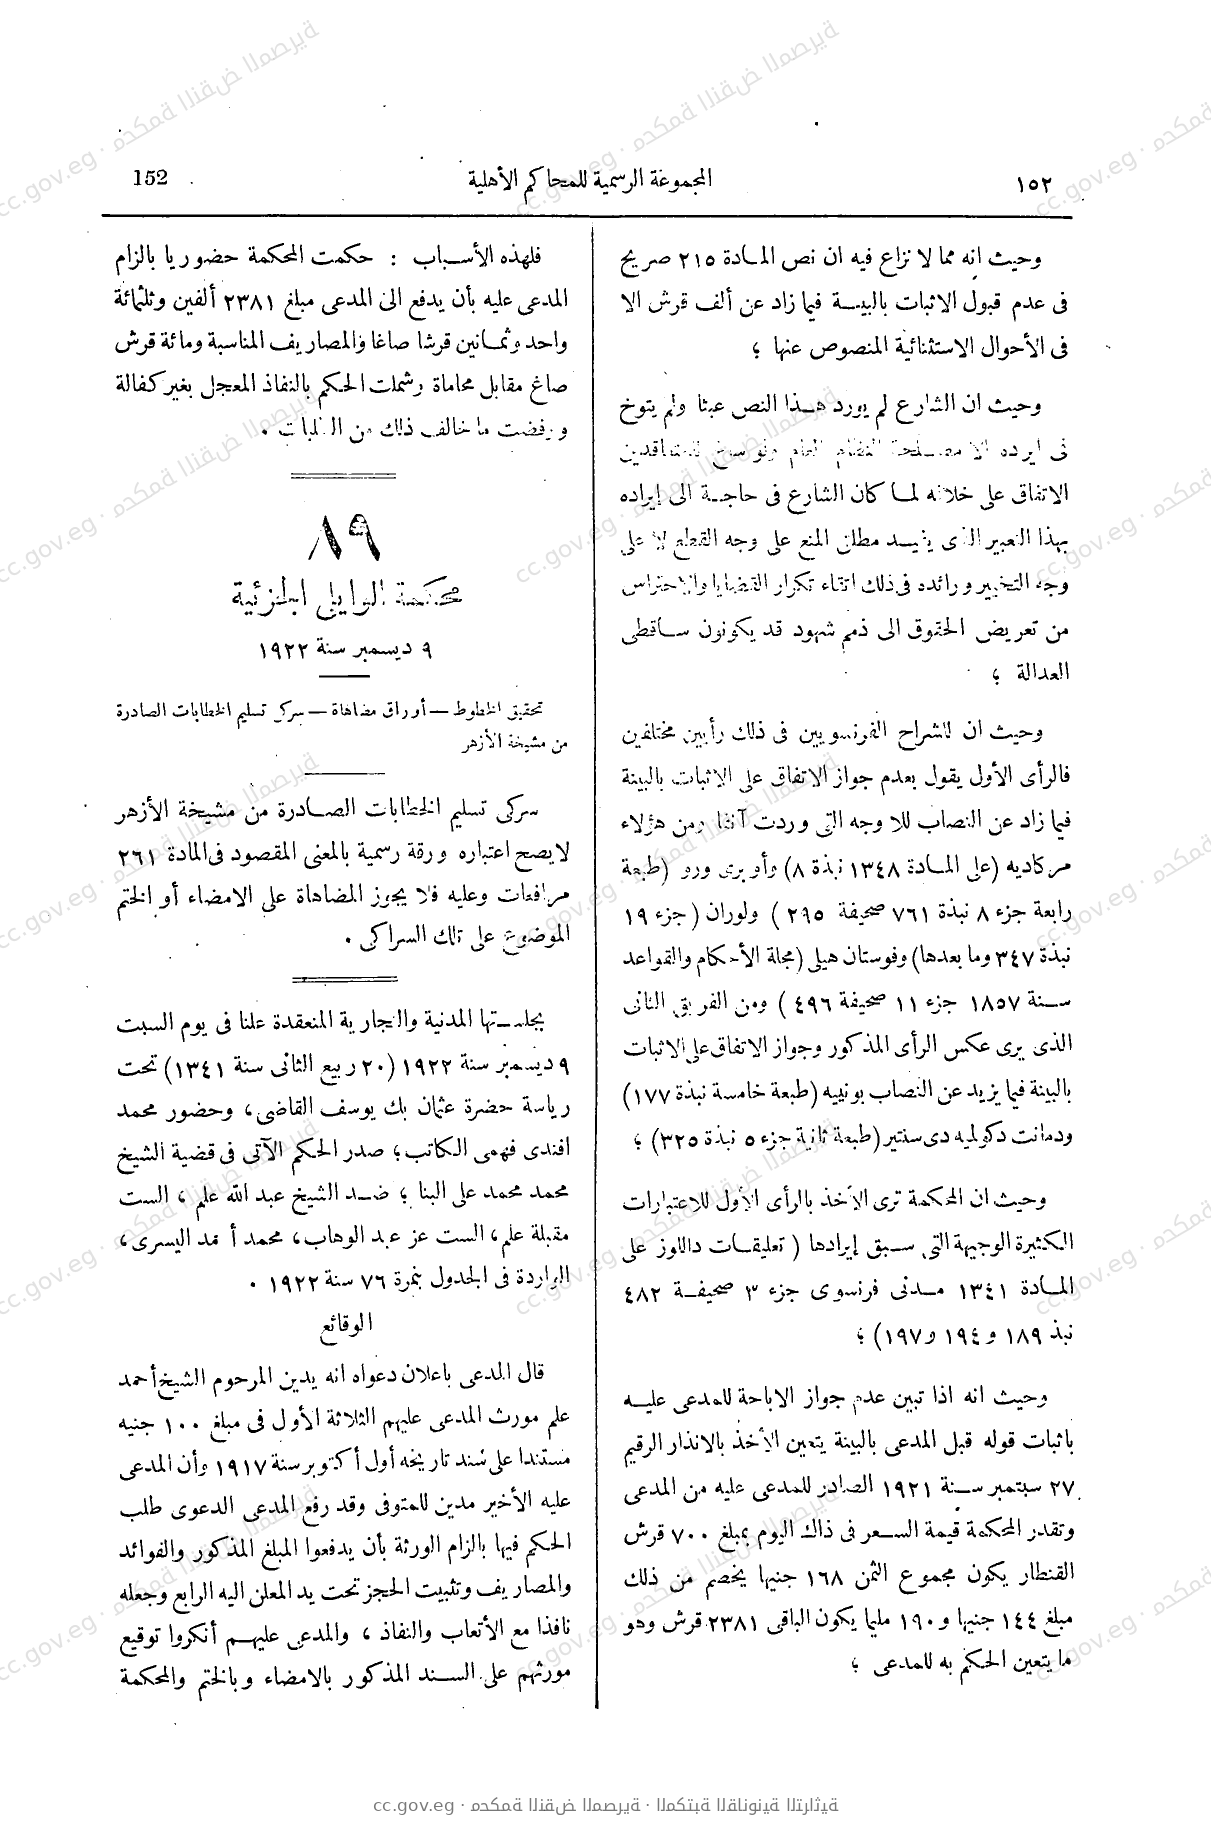 ١٥٢
المجموعة الرسمية للمحاكم الأهلية
152
وحيث انه مما لا نزاع فيه ان نص المادة ٢١٥ صريح
فى عدم قبول الاثبات بالبينة فيما زاد عن ألف قرش الا
فى الأحوال الاستثنائية المنصوص عنها ؛
وحيث ان الشارع لم يورد هذا النص عبثا ولم يتوخ
فى ايرده الا مصلحة النظام العام ولو اسخ للمتعاقدين
الاتفاق على خلافه لما كان الشارع فى حاجة الى إيراده
بهذا التعبير الذى يفيد مطلق المنع على وجه القطع لا على
وجه التخيير ورائده فى ذلك اتقاء تكرار القضايا والاحتراس
من تعريض الحقوق الى ذمم شهود قد يكونون ساقطى
العدالة ؛
وحيث ان للشراح الفرنسويين فى ذلك رأيين مختلفين
فالرأى الأول يقول بعدم جواز الاتفاق على الاثبات بالبينة
فيما زاد عن النصاب للاوجه التى وردت آنفا ومن هؤلاء
مركاديه (على المادة ١٣٤٨ نبذة ٨) وأوبرى ورو (طبعة
رابعة جزء ٨ نبذة ٧٦١ صحيفة ٢٩٥ ) ولوران ( جزء ١٩
نبذة ٣٤٧ وما بعدها) وفوستان هيلى (مجلة الأحكام والقواعد
سنة ١٨٥٧ جزء ١١ صحيفة ٤٩٦ ) ومن الفريق الثانى
الذى يرى عكس الرأى المذكور وجواز الاتفاق على الاثبات
بالبينة فيما يزيد عن النصاب بونييه (طبعة خامسة نبذة ١٧٧)
ودمانت دكولميه دى سنتير (طبعة ثانية جزء ٥ نبذة ٣٢٥) ؛
وحيث ان المحكمة ترى الأخذ بالرأى الأول للاعتبارات
الكثيرة الوجيهة التى سبق إيرادها ( تعليقات داللوز على
المادة ١٣٤١ مدنى فرنسوى جزء ٣ صحيفة ٤٨٢
نبذ ١٨٩ و ١٩٤ و ١٩٧) ؛
وحيث انه اذا تبين عدم جواز الاباحة للمدعى عليه
باثبات قوله قبل المدعى بالبينة يتعين الأخذ بالانذار الرقيم
٢٧ سبتمبر سنة ١٩٢١ الصادر للمدعى عليه من المدعى
وتقدر المحكمة قيمة السعر فى ذاك اليوم بمبلغ ٧٠٠ قرش
القنطار يكون مجموع الثمن ١٦٨ جنيها يخصم من ذلك
مبلغ ١٤٤ جنيها و ١٩٠ مليما يكون الباقى ٢٣٨١ قرش وهو
ما يتعين الحكم به للمدعى ؛
فلهذه الأسباب : حكمت المحكمة حضوريا بالزام
المدعى عليه بأن يدفع الى المدعى مبلغ ٢٣٨١ ألفين وثلثمائة
واحد وثمانين قرشا صاغا والمصاريف المناسبة ومائة قرش
صاغ مقابل محاماة وشملت الحكم بالنفاذ المعجل بغير كفالة
ورفضت ما خالف ذلك من الطلبات .
٨٩
محكمة الوايلى الجزئية
٩ ديسمبر سنة ١٩٢٢
تحقيق الخطوط — أوراق مضاهاة — سركى تسليم الخطابات الصادرة
من مشيخة الأزهر
سركى تسليم الخطابات الصادرة من مشيخة الأزهر
لا يصح اعتباره ورقة رسمية بالمعنى المقصود فى المادة ٢٦١
مرافعات وعليه فلا يجوز المضاهاة على الامضاء أو الختم
الموضوع على تلك السراكى .
بجلستها المدنية والتجارية المنعقدة علنا فى يوم السبت
٩ ديسمبر سنة ١٩٢٢ (٢٠ ربيع الثانى سنة ١٣٤١) تحت
رياسة حضرة عثمان بك يوسف القاضى ، وحضور محمد
افندى فهمى الكاتب ؛ صدر الحكم الآتى فى قضية الشيخ
محمد محمد على البنا ؛ ضد الشيخ عبد الله علم ، الست
مقبلة علم ، الست عز عبد الوهاب ، محمد أحمد اليسرى ،
الواردة فى الجدول بنمرة ٧٦ سنة ١٩٢٢ .
الوقائع
قال المدعى باعلان دعواه انه يدين المرحوم الشيخ أحمد
علم مورث المدعى عليهم الثلاثة الأول فى مبلغ ١٠٠ جنيه
مستندا على سند تاريخه أول أكتوبر سنة ١٩١٧ وأن المدعى
عليه الأخير مدين للمتوفى وقد رفع المدعى الدعوى طلب
الحكم فيها بالزام الورثة بأن يدفعوا المبلغ المذكور والفوائد
والمصاريف وتثبيت الحجز تحت يد المعلن اليه الرابع وجعله
نافذا مع الأتعاب والنفاذ ، والمدعى عليهم أنكروا توقيع
مورثهم على السند المذكور بالامضاء وبالختم والمحكمة
cc.gov.eg · محكمة النقض المصرية · المكتبة القانونية التراثية